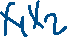 x₁x₂